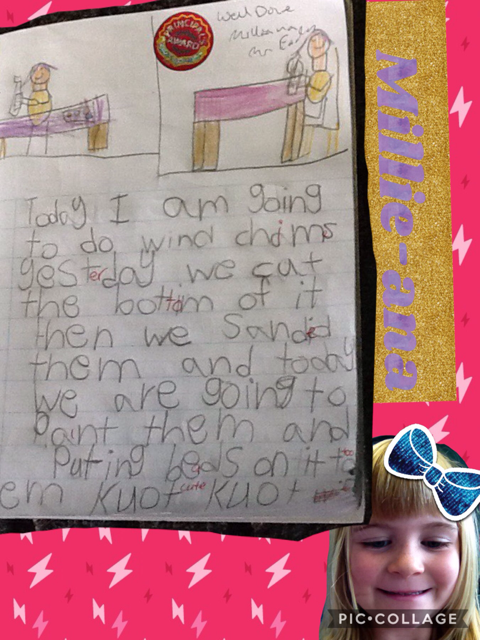 Well Done
Millieana
PRINCIPAL'S
AWARD
Today I am going
to do wind chims
yesterday we cat
the bottom of it
then we Sanded
them and today
we are going to
Paint them and
Puting beads on it to
em Kuot cute Kuot
Millie-ana
PIC•COLLAGE